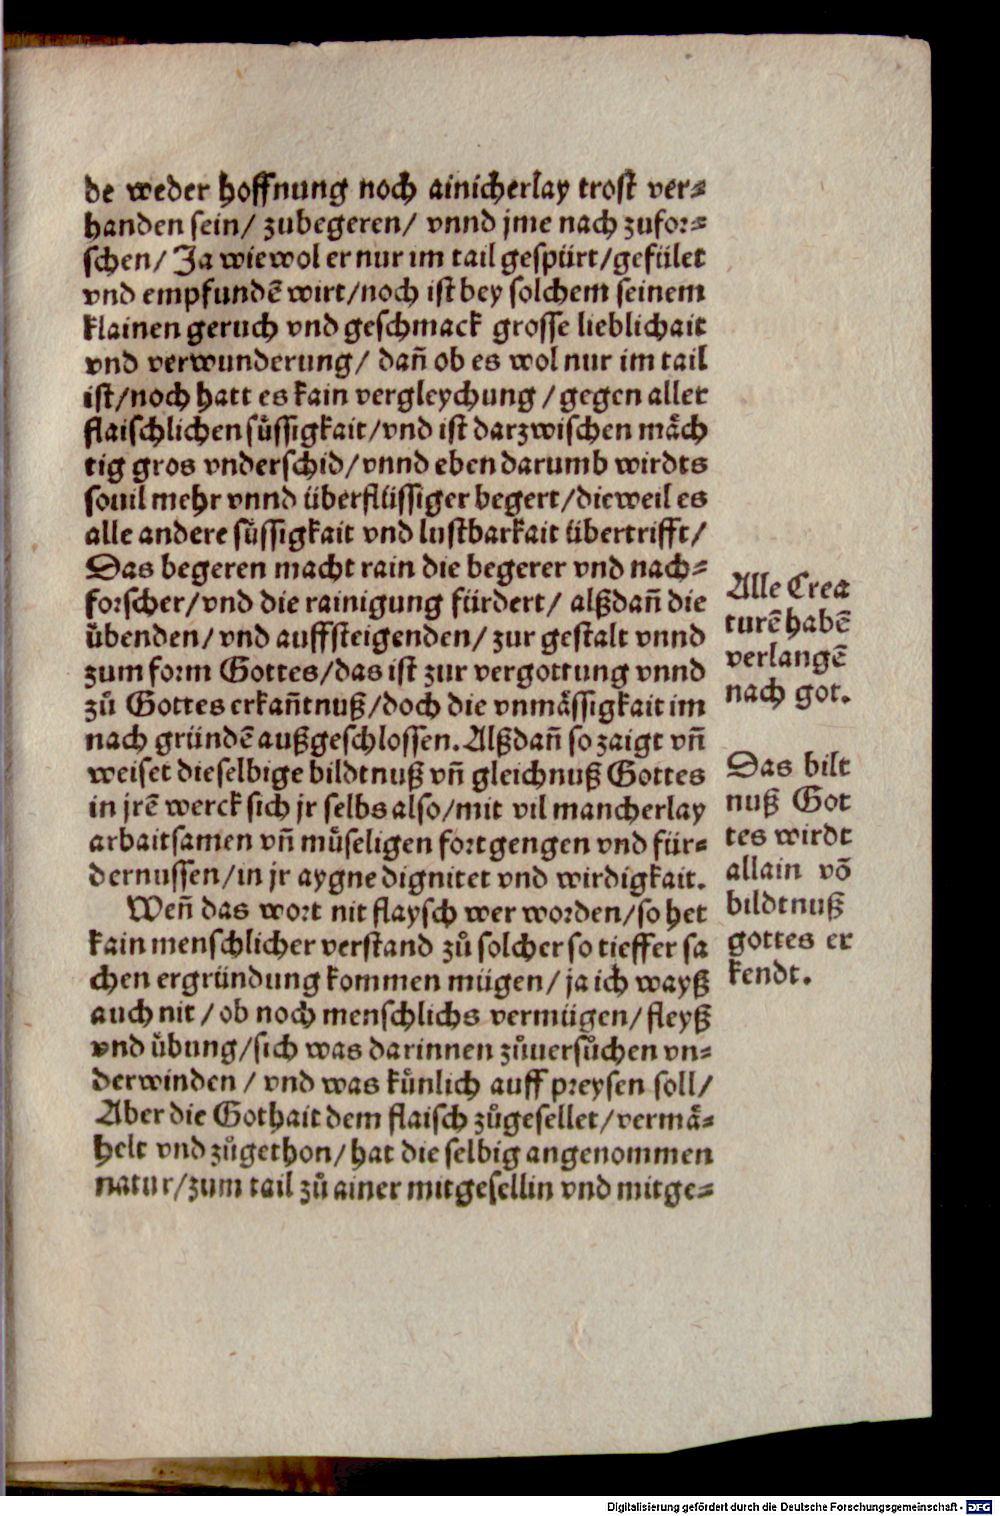 de weder hoffnung noch ainicherlay trost ver⸗
handen sein/ zubegeren/ vnnd jme nach zufor⸗
schen/ Ja wiewol er nur im tail gespürt/gefület
vnd empfundē wirt/noch ist bey solchem seinem
klainen geruch vnd geschmack grosse lieblichait
vnd verwunderung/ dañ ob es wol nur im tail
ist/noch hatt es kain vergleychung /gegen aller
flaischlichen süssigkait/vnd ist darzwischen mäch
tig gros vnderschid/vnnd eben darumb wirdts
souil mehr vnnd überflüssiger begert/dieweil es
alle andere süssigkait vnd lustbarkait übertrifft/
Das begeren macht rain die begerer vnd nach⸗
forscher/vnd die rainigung fürdert/ alßdañ die
übenden/vnd auffsteigenden/zur gestalt vnnd
zum form Gottes/das ist zur vergottung vnnd
zů Gottes erkañtnuß/doch die vnmässigkait im
nach gründē außgeschlossen. Alßdañ so zaigt vñ
weiset dieselbige bildtnuß vñ gleichnuß Gottes
in jrē werck sich jr selbs also/mit vil mancherlay
arbaitsamen vñ müseligen fortgengen vnd für⸗
dernussen/in jr aygne dignitet vnd wirdigkait.
Weñ das wort nit flaysch wer worden/so het
kain menschlicher verstand zů solcher so tieffer sa
chen ergründung kommen mügen/ja ich wayß
auch nit /ob noch menschlichs vermügen/fleyß
vnd übung/sich was darinnen zůuersůchen vn⸗
derwinden /vnd was künlich auff preysen soll/
Aber die Gothait dem flaisch zůgesellet/vermä⸗
helt vnd zůgethon/hat die selbig angenommen
natur/zum tail zů ainer mitgesellin vnd mitge⸗
Alle Crea
turē habē
verlangē
nach got.
Das bilt
nuß Got
tes wirdt
allain vō
bildtnuß
gottes er
kendt.
Digitalisierung gefördert durch die Deutsche Forschungsgemeinschaft - DFG